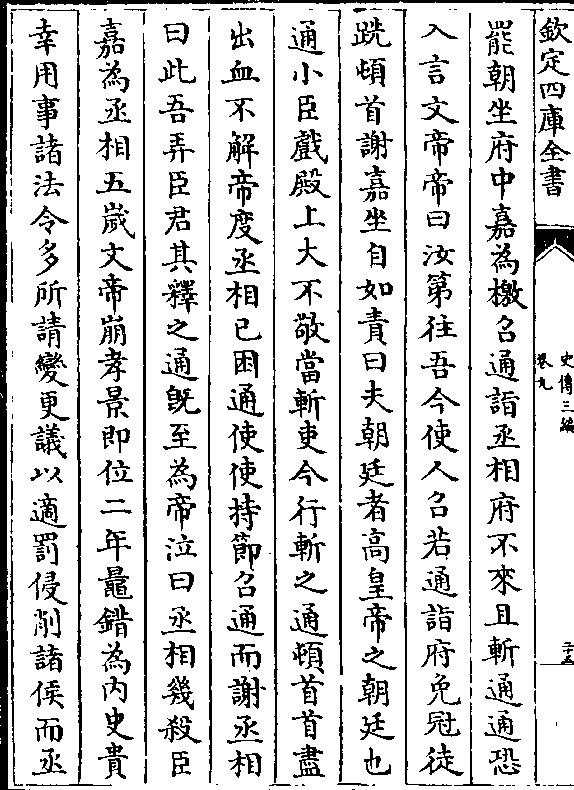 欽定四庫全書
史傳三編
卷九
二十五
罷朝坐府中嘉為檄召通詣丞相府不來且斬通通恐
入言文帝帝曰汝第往吾今使人召若通詣府免冠徒
跣頓首謝嘉坐自如責曰夫朝廷者高皇帝之朝廷也
通小臣戲殿上大不敬當斬吏今行斬之通頓首首盡
出血不解帝度丞相已困通使使持節召通而謝丞相
曰此吾弄臣君其釋之通既至為帝泣曰丞相幾殺臣
嘉為丞相五歲文帝崩孝景即位二年鼂錯為內史貴
幸用事諸法令多所請變更議以適罰侵削諸侯而丞